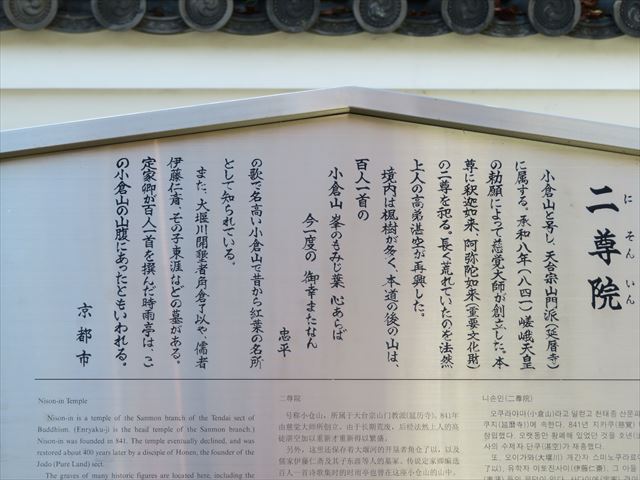 二尊院
にそんいん
小倉山と号し、天台宗山門派(延暦寺)
に属する。承和八年(八四一)嵯峨天皇
の勅願によって慈覚大師が創立した。本
尊に釈迦如来、阿弥陀如来(重要文化財)
の二尊を祀る。長く荒れていたのを法然
上人の高弟湛空が再興した。
境内は楓樹が多く、本道の後の山は、
百人一首の
小倉山 峯のもみじ葉 心あらば
今一度の 御幸またなん
忠平
の歌で名高い小倉山で昔から紅葉の名所
として知られている。
また、大堰川開鑿者角倉了以や、儒者
伊藤仁斎、その子東涯などの墓がある。
定家卿が百人一首を撰んだ時雨亭は、こ
の小倉山の山腹にあったともいわれる。
京都市
Nison-in Temple
Nison-in is a temple of the Sanmon branch of the Tendai sect of
Buddhism. (Enryaku-ji is the head temple of the Sanmon branch.)
Nison-in was founded in 841. The temple eventually declined, and was
restored about 400 years later by a disciple of Honen, the founder of the
Jodo (Pure Land) sect.
The graves of many historic figures are located here, including the
二尊院
号称小仓山，所属于天台宗山门教派(延历寺)。841年
由慈觉大师所创立。由于长期荒废，后经法然上人的高
徒湛空加以重新才重新得以繁盛。
另外，这里还保存着大堰河的开凿者角仓了以，以及
儒家伊藤仁斋及其子东涯等人的墓冢。传说定家卿编选
百人一首诗歌集时的时雨亭也曾在这座小仓山的山中。
니손인(二尊院)
오쿠라야마(小倉山)라고 일컫고 천태종 산문파